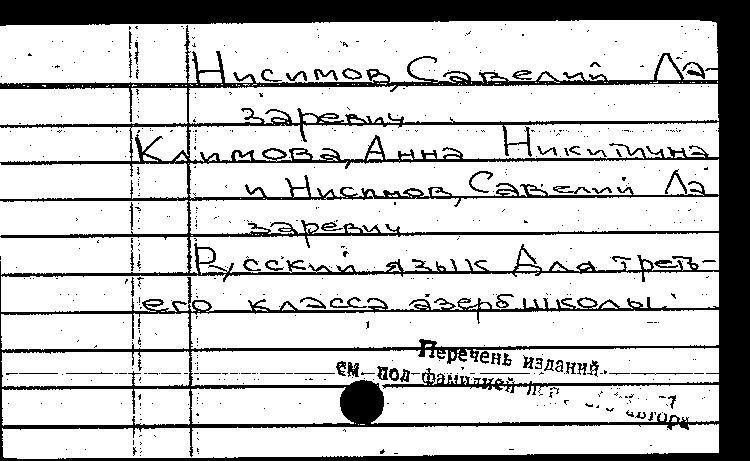 Нисимов, Савелий Ла-
заревич
Климова, Анна Никитична
и Нисимов, Савелий Ла
заревич
Русский язык для треть-
его класса азербшколы.
Перечень изданий
см. под фамилией автора